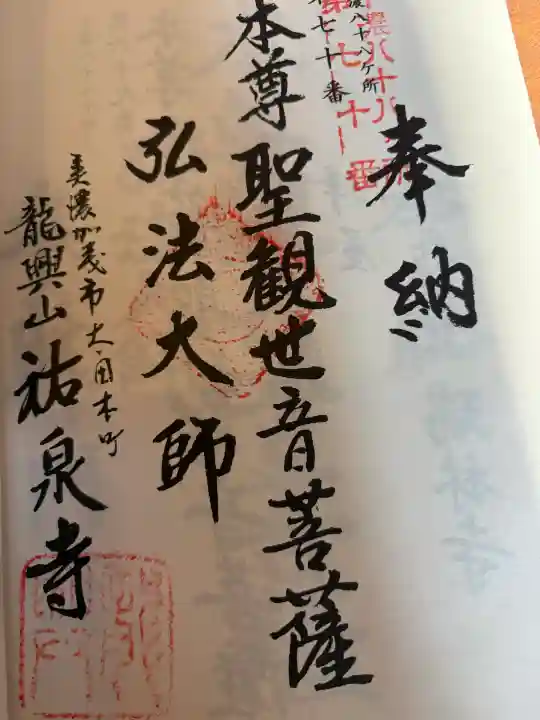 奉納
濃八十八ヶ所
七十番
本尊 聖観世音菩薩
弘法大師
美濃加茂市太田本町
龍興山祐泉寺